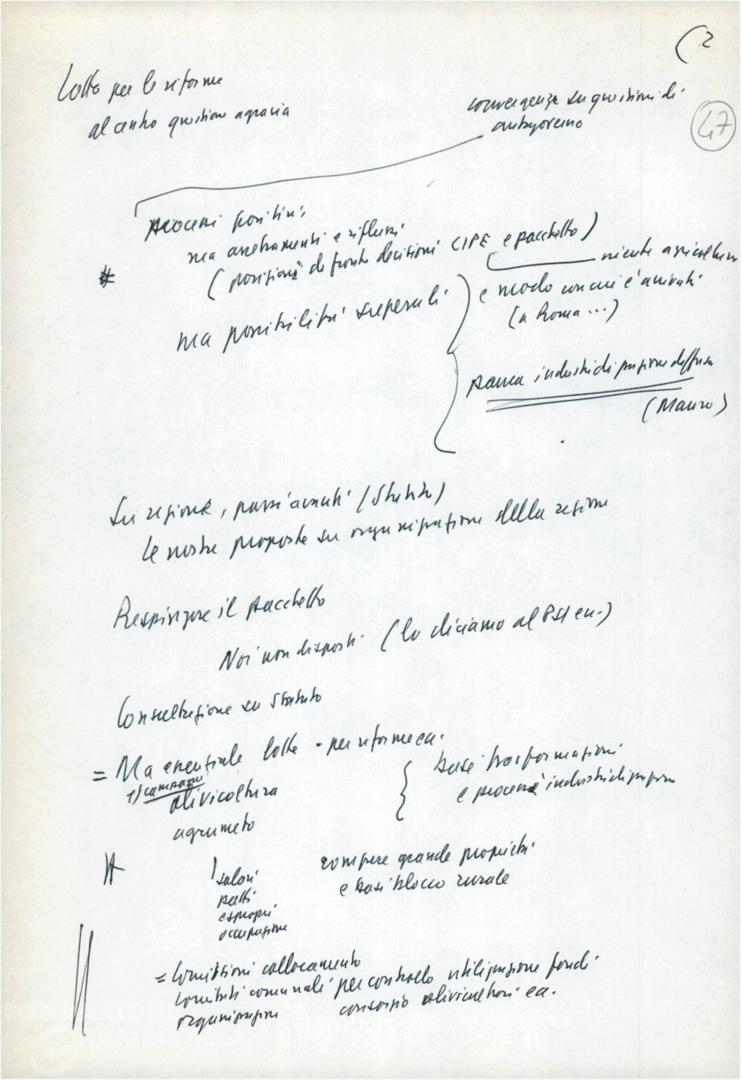 (2
47
Lotta per le riforme
al centro questione agraria
convergenza su questioni di
antigoverno
processi positivi
ma arretramenti e riflussi
(posizioni di fronte decisioni CIPE e pacchetto)
niente agricoltura
ma possibilità superarli
e modo con cui è arrivati
(a Roma...)
industrializzazione diffusa
(Mauro)
Su regione, passi avanti (Statuto)
le nostre proposte su organizzazione della regione
Respingere il pacchetto
Noi non disposti (lo diciamo al PSI ecc.)
Consultazione su Statuto
= Ma essenziale lotte - per riforme ecc.
1) campagne
olivicoltura
agrumeto
base trasformazioni
e processi industrializzazione
salari
patti
espropri
occupazione
rompere grande proprietà
e basi blocco rurale
= Commissioni collocamento
comitati comunali per controllo utilizzazione fondi
organizzazioni consorzio olivicoltori ecc.